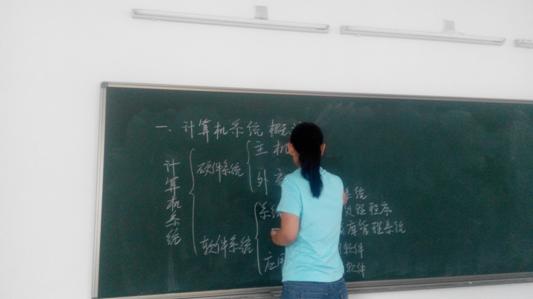 一、计算机系统概
计算机系统
硬件系统
主机
外
软件系统
系统
统
处理程序
库管理系统
应用
软件
软件